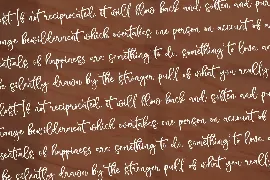 ost is not reciprocated, it will blow back and soften and pu
range bewilderment which overtakes one person on account of a
sentials of happiness are: something to do, something to love, a
be silently drawn by the stronger pull of what you really
last is not reciprocated, it will blow back and soften and pu
range bewilderment which overtakes one person on account of
sentials of happiness are: something to do, something to love, a
be silently drawn by the stronger pull of what you reall